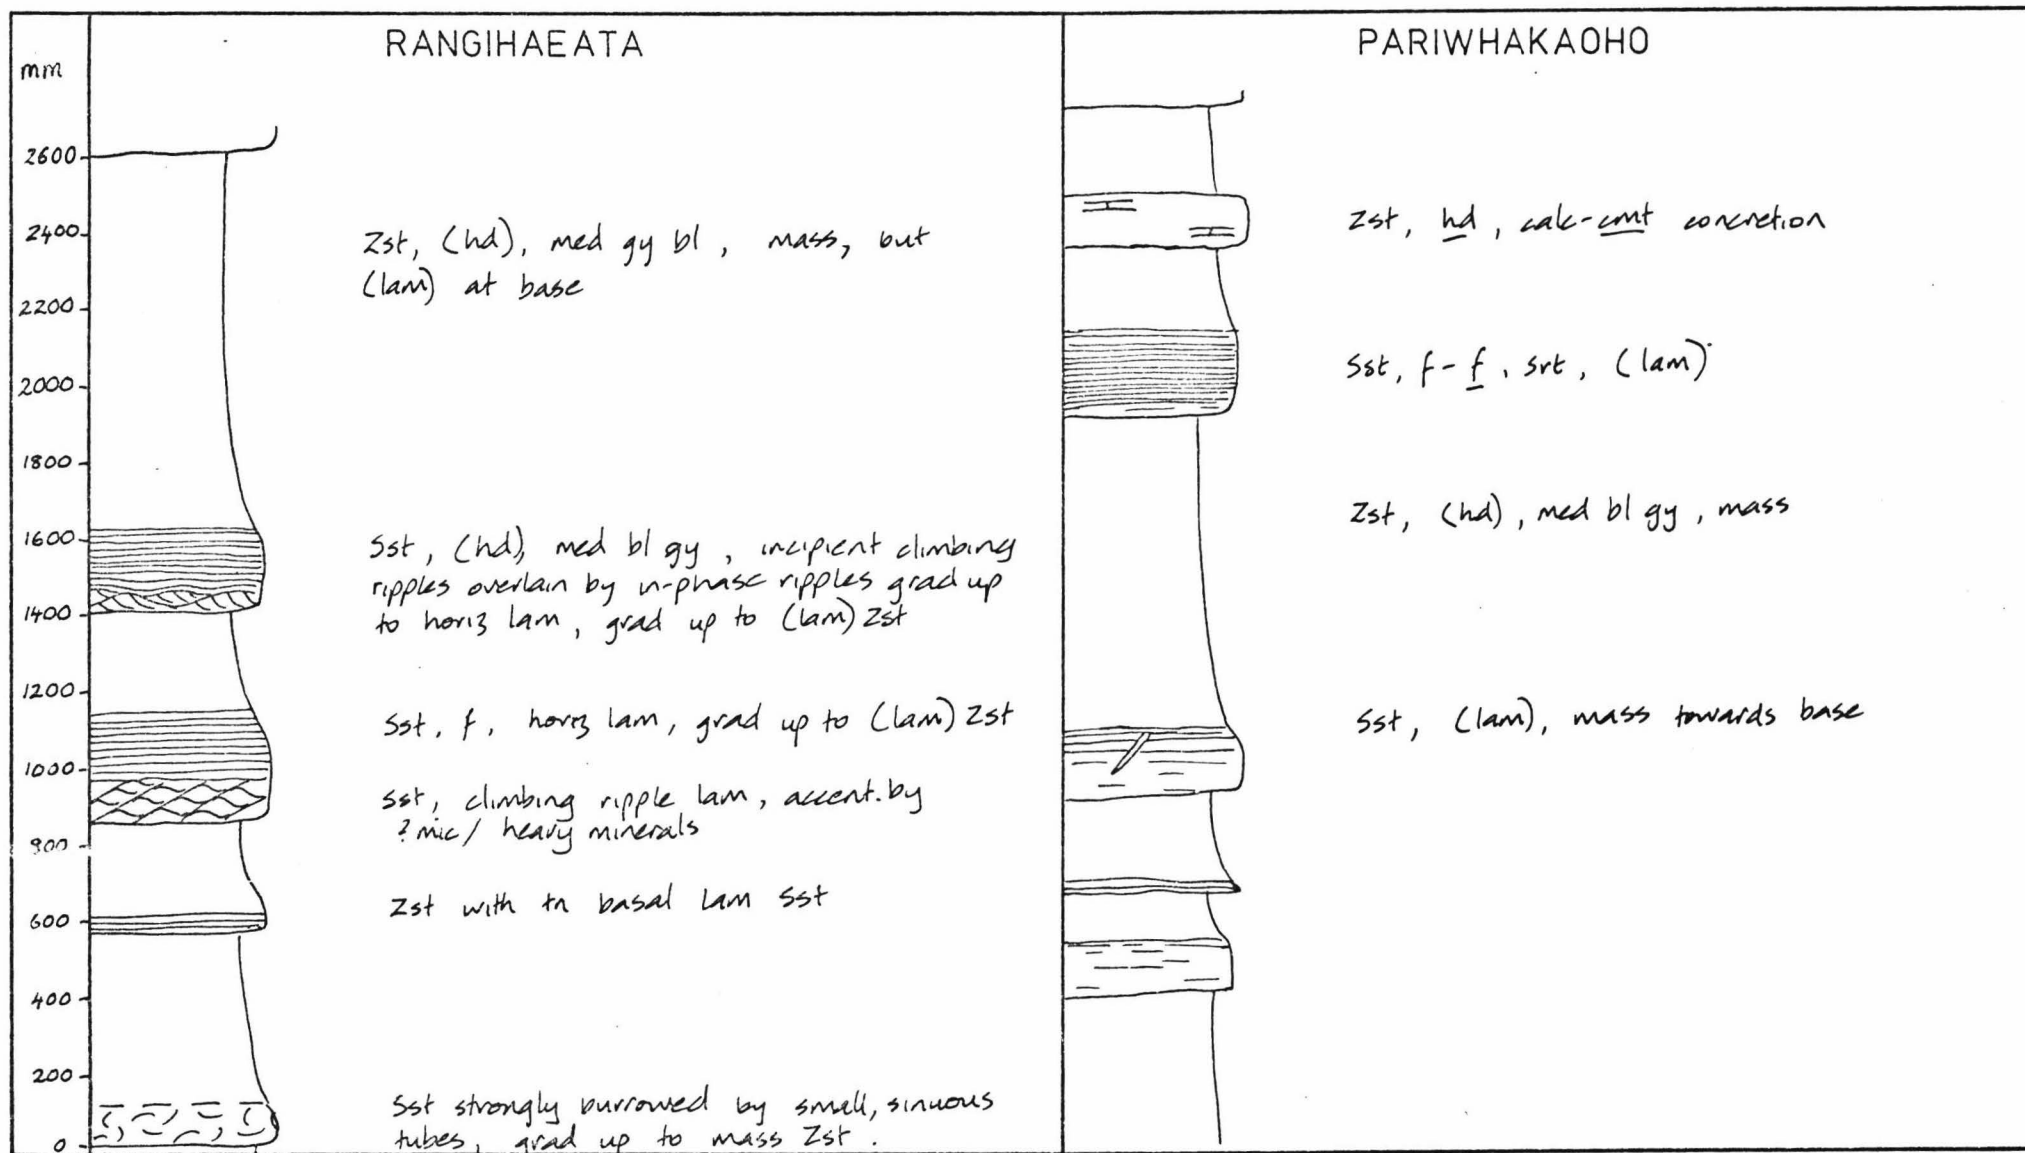 RANGIHAEATA
mm
2600
2400
2200
2000
1800
1600
1400
1200
1000
800
600
400
200
0
Zst, (hd), med gy bl, mass, but
(lam) at base
Sst, (hd), med bl gy, incipient climbing
ripples overlain by in-phase ripples grad up
to horiz lam, grad up to (lam) Zst
Sst, f, horiz lam, grad up to (lam) Zst
Sst, climbing ripple lam, accent. by
? mic / heavy minerals
Zst with tn basal lam Sst
Sst strongly burrowed by small, sinuous
tubes, grad up to mass Zst.
PARIWHAKAOHO
Zst, hd, calc-cmt concretion
Sst, f-f, srt, (lam)
Zst, (hd), med bl gy, mass
Sst, (lam), mass towards base